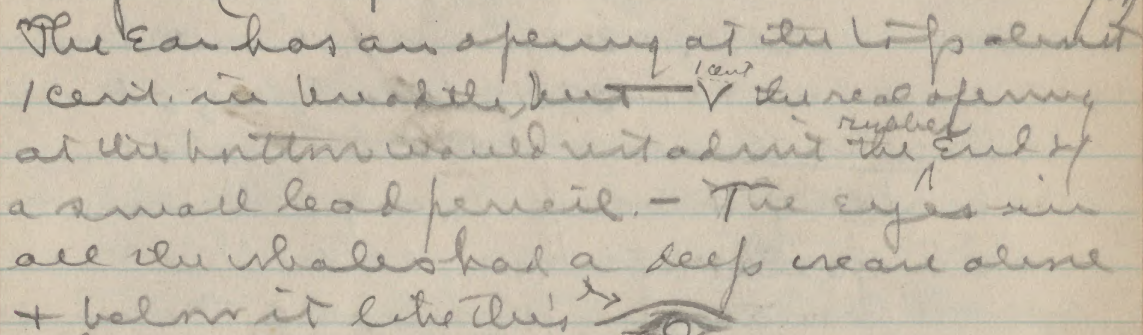 The Ear has an opening at the top about
1 cent. in breadth, but — 1 cent V the real opening
at the bottom would not admit the rubber End of
a small lead pencil. — The eyes in
all the whales had a deep crease above
+ below it like this